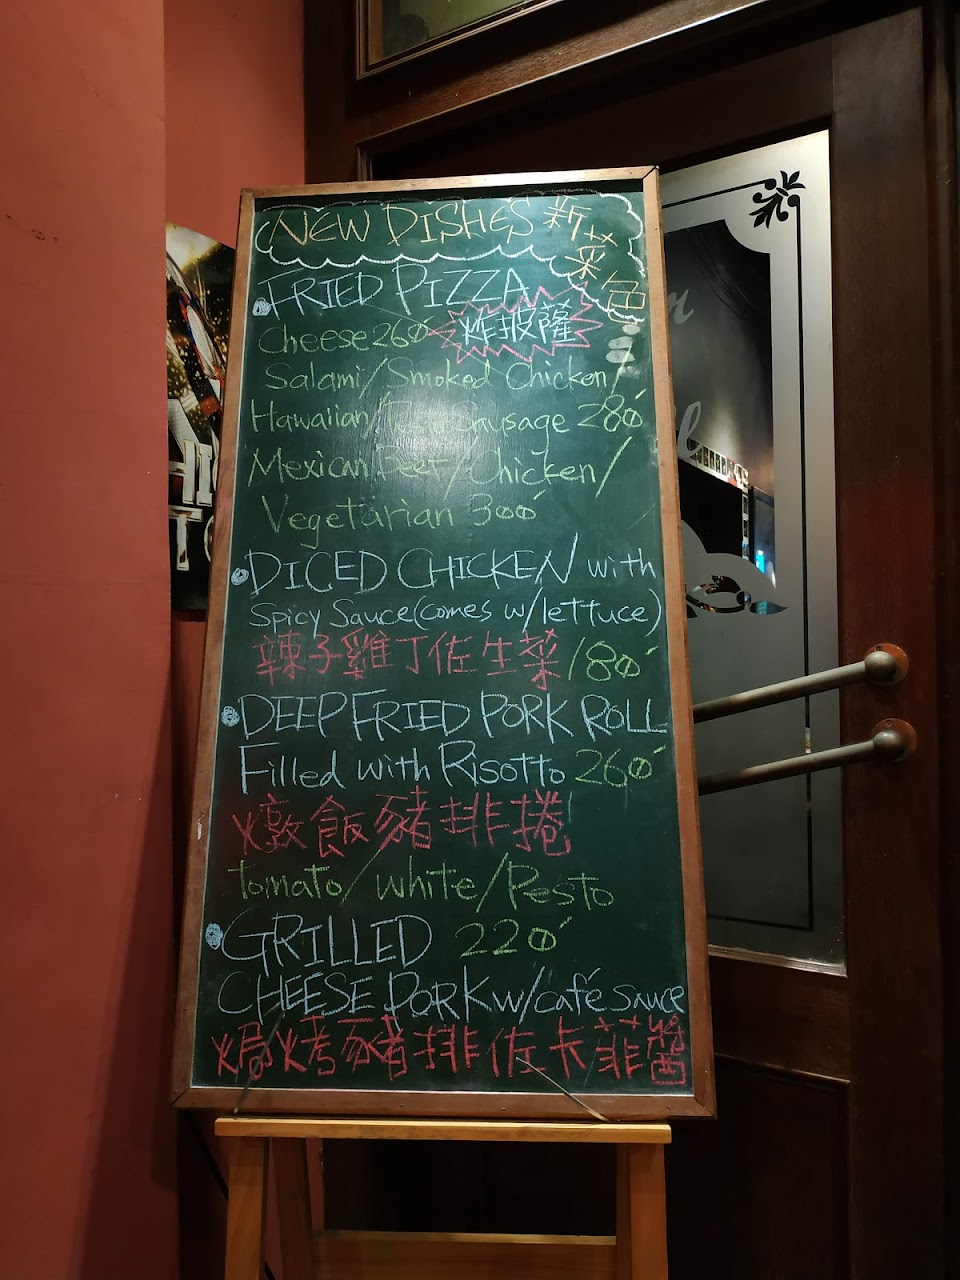 NEW DISHES 新菜色
FRIED PIZZA
炸披薩
Cheese 260
Salami/Smoked Chicken/
Hawaiian/ Sausage 280
Mexican Beef/Chicken/
Vegetarian 300
DICED CHICKEN with
Spicy Sauce (comes w/lettuce)
辣子雞丁佐生菜 180
DEEP FRIED PORK ROLL
Filled with Risotto 260
燉飯豬排捲
tomato/white/Pesto
GRILLED 220
CHEESE PORK w/café sauce
焗烤豬排佐卡菲醬